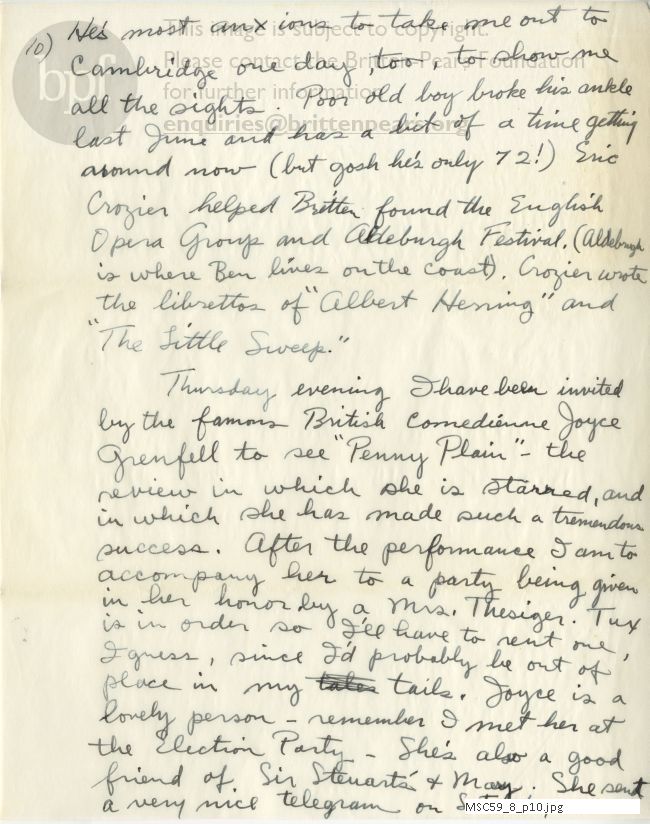 10) He's most anxious to take me out to
Cambridge one day, too, to show me
all the sights. Poor old boy broke his ankle
last June and has a bit of a time getting
around now (but gosh he's only 72!) Eric
Crozier helped Britten found the English
Opera Group and Aldeburgh Festival. (Aldeburgh
is where Ben lives on the coast). Crozier wrote
the librettos of "Albert Herring" and
"The Little Sweep."
Thursday evening I have been invited
by the famous British comedienne Joyce
Grenfell to see "Penny Plain" - the
review in which she is starred, and
in which she has made such a tremendous
success. After the performance I am to
accompany her to a party being given
in her honor by a Mrs. Thesiger. Tux
is in order so I'll have to rent one,
I guess, since I'd probably be out of
place in my tales tails. Joyce is a
lovely person - remember I met her at
the Election Party - She's also a good
friend of Sir Steuart's & May. She sent
a very nice telegram on
This image is subject to copyright.
Please contact the Britten-Pears Foundation
for further information
enquiries@brittenpears.org
bpf
MSC59_8_p10.jpg